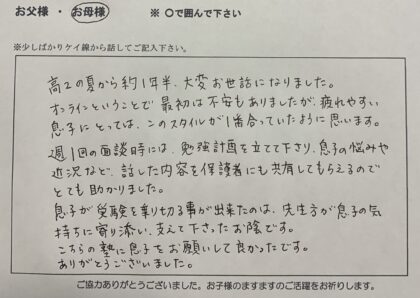 お父様 ・ お母様 ※ 〇で囲んで下さい
※少しばかりケイ線から話してご記入下さい。
高2の夏から約1年半、大変お世話になりました。
オンラインということで最初は不安もありましたが、疲れやすい
息子にとっては、このスタイルが1番合っていたように思います。
週1回の面談時には、勉強計画を立てて下さり、息子の悩みや
近況など、話した内容を保護者にも共有してもらえるので
とても助かりました。
息子が受験を乗り切る事が出来たのは、先生方が息子の気
持ちに寄り添い、支えて下さったお陰です。
こちらの塾に息子をお願いして良かったです。
ありがとうございました。
ご協力ありがとうございました。お子様のますますのご活躍をお祈りします。